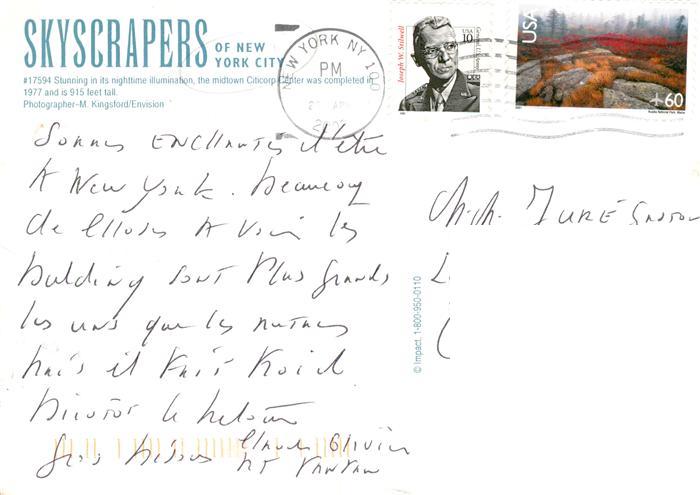 SKYSCRAPERS OF NEW YORK CITY
#17594 Stunning in its nighttime illumination, the midtown Citicorp Center was completed in
1977 and is 915 feet tall.
Photographer–M. Kingsford/Envision
NEW YORK NY 100
PM
Joseph W. Stilwell
USA
10
USA
60
Acadia National Park, Maine
Sommes ENCHANTES d'être
A New York. Beaucoup
de choses A voir les
building sont plus grands
les uns que les autres
mais il fait froid
Bientôt le retour
Gros bisous Claude Olivier
ET
M.M. JURÉ GASTON
© Impact. 1-800-950-0110